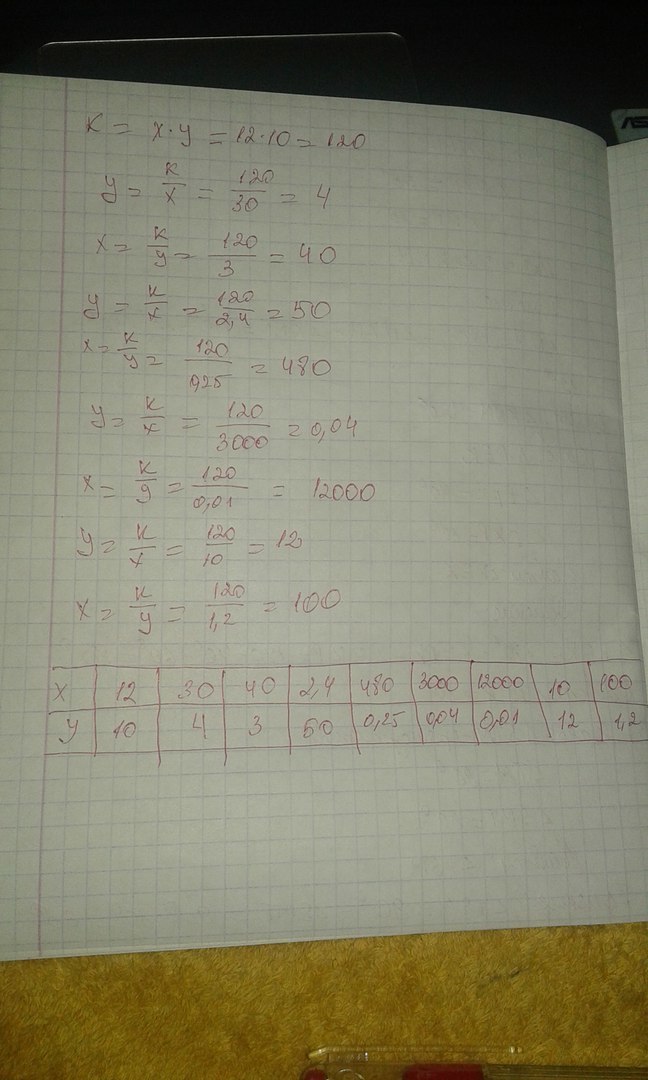 K = x·y = 12·10 = 120
y = K/x = 120/30 = 4
x = K/y = 120/3 = 40
y = K/x = 120/2,4 = 50
x = K/y = 120/0,25 = 480
y = K/x = 120/3000 = 0,04
x = K/y = 120/0,01 = 12000
y = K/x = 120/10 = 12
x = K/y = 120/1,2 = 100
x 12 30 40 2,4 480 3000 12000 10 100
y 10 4 3 50 0,25 0,04 0,01 12 1,2